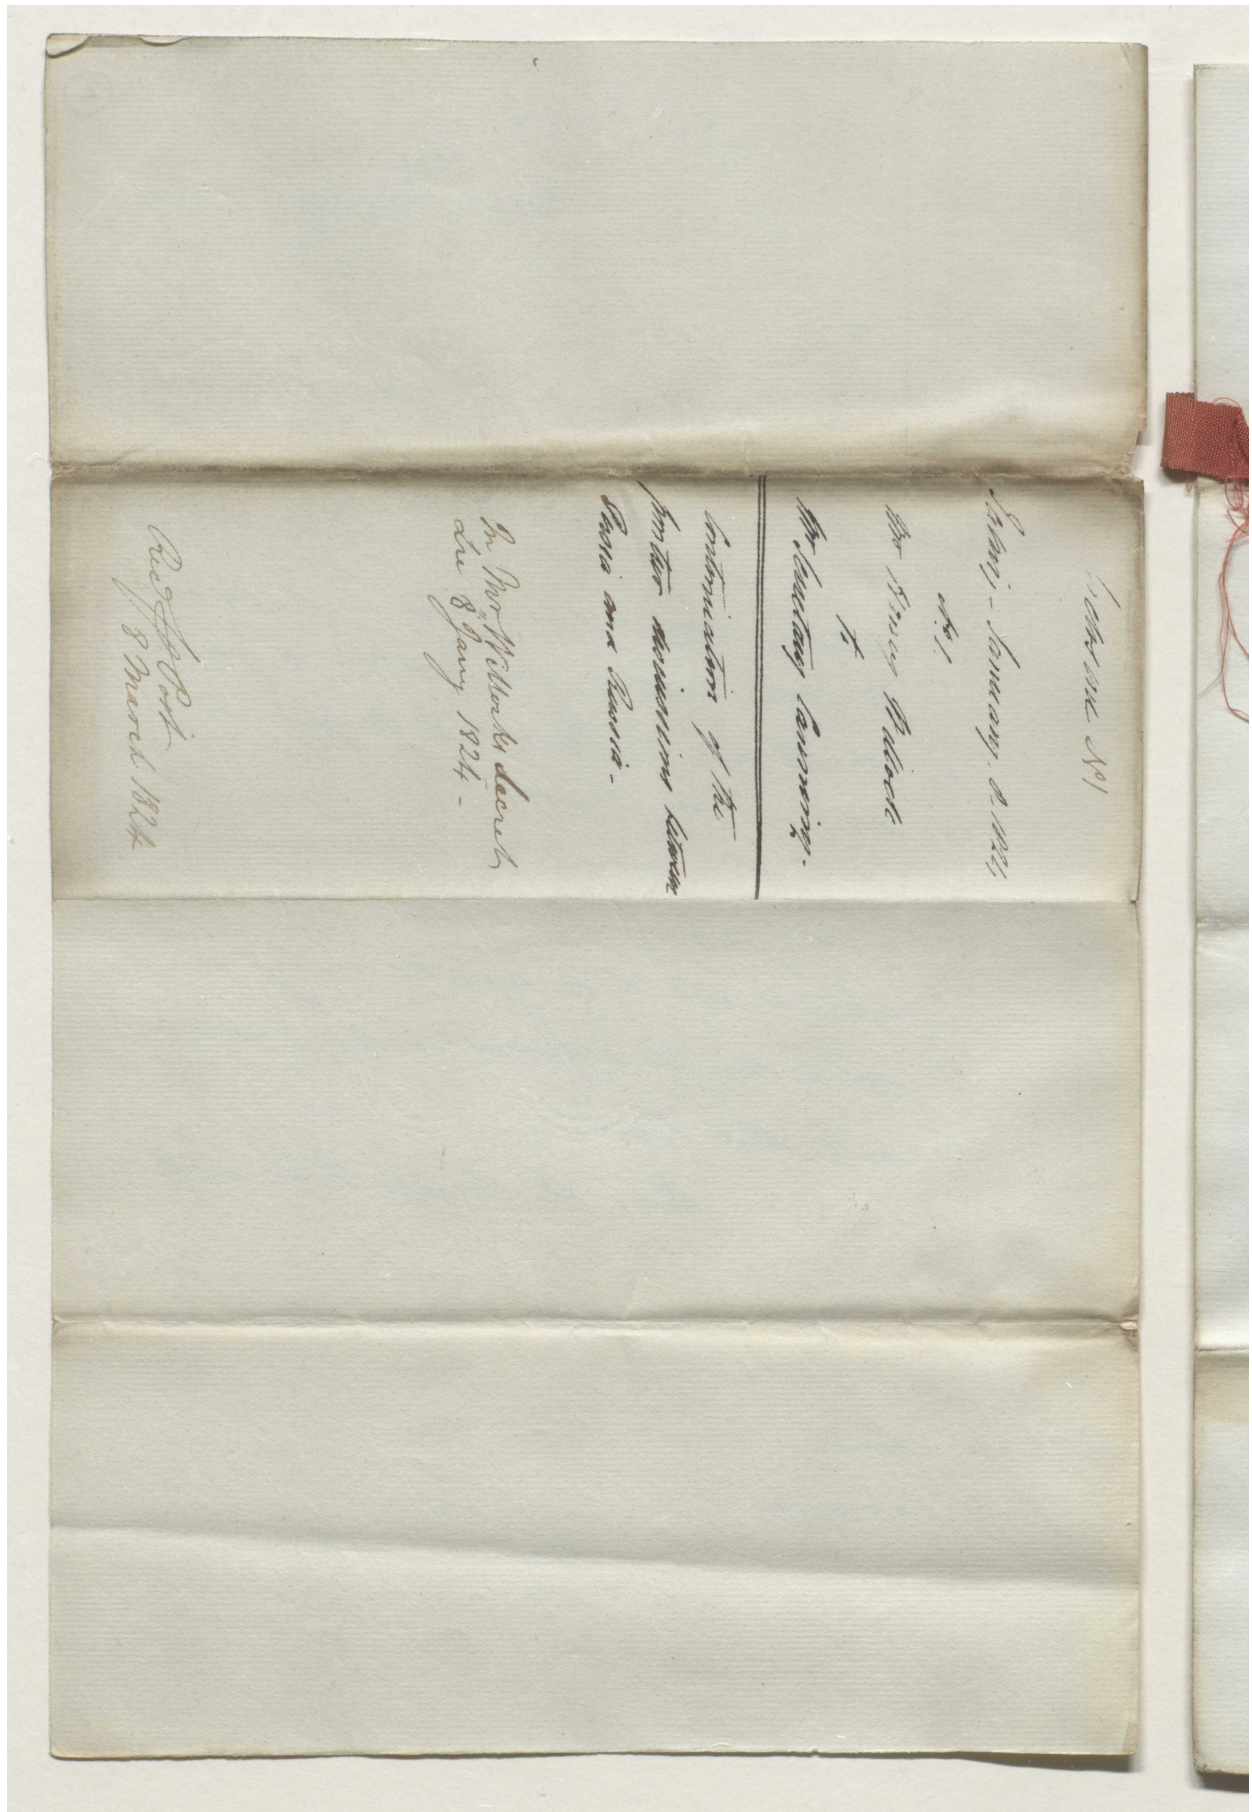 Enclosure No 1
Tabriz - January 8. 1824
No. 1
Mr Henry Willock
to
Mr Secretary Canning -
Continuation of the
frontier discussions between
Persia and Russia -
In Mr Willock's Secret
Lre 8 Jany 1824 -
Rec
Post
8 March 1824